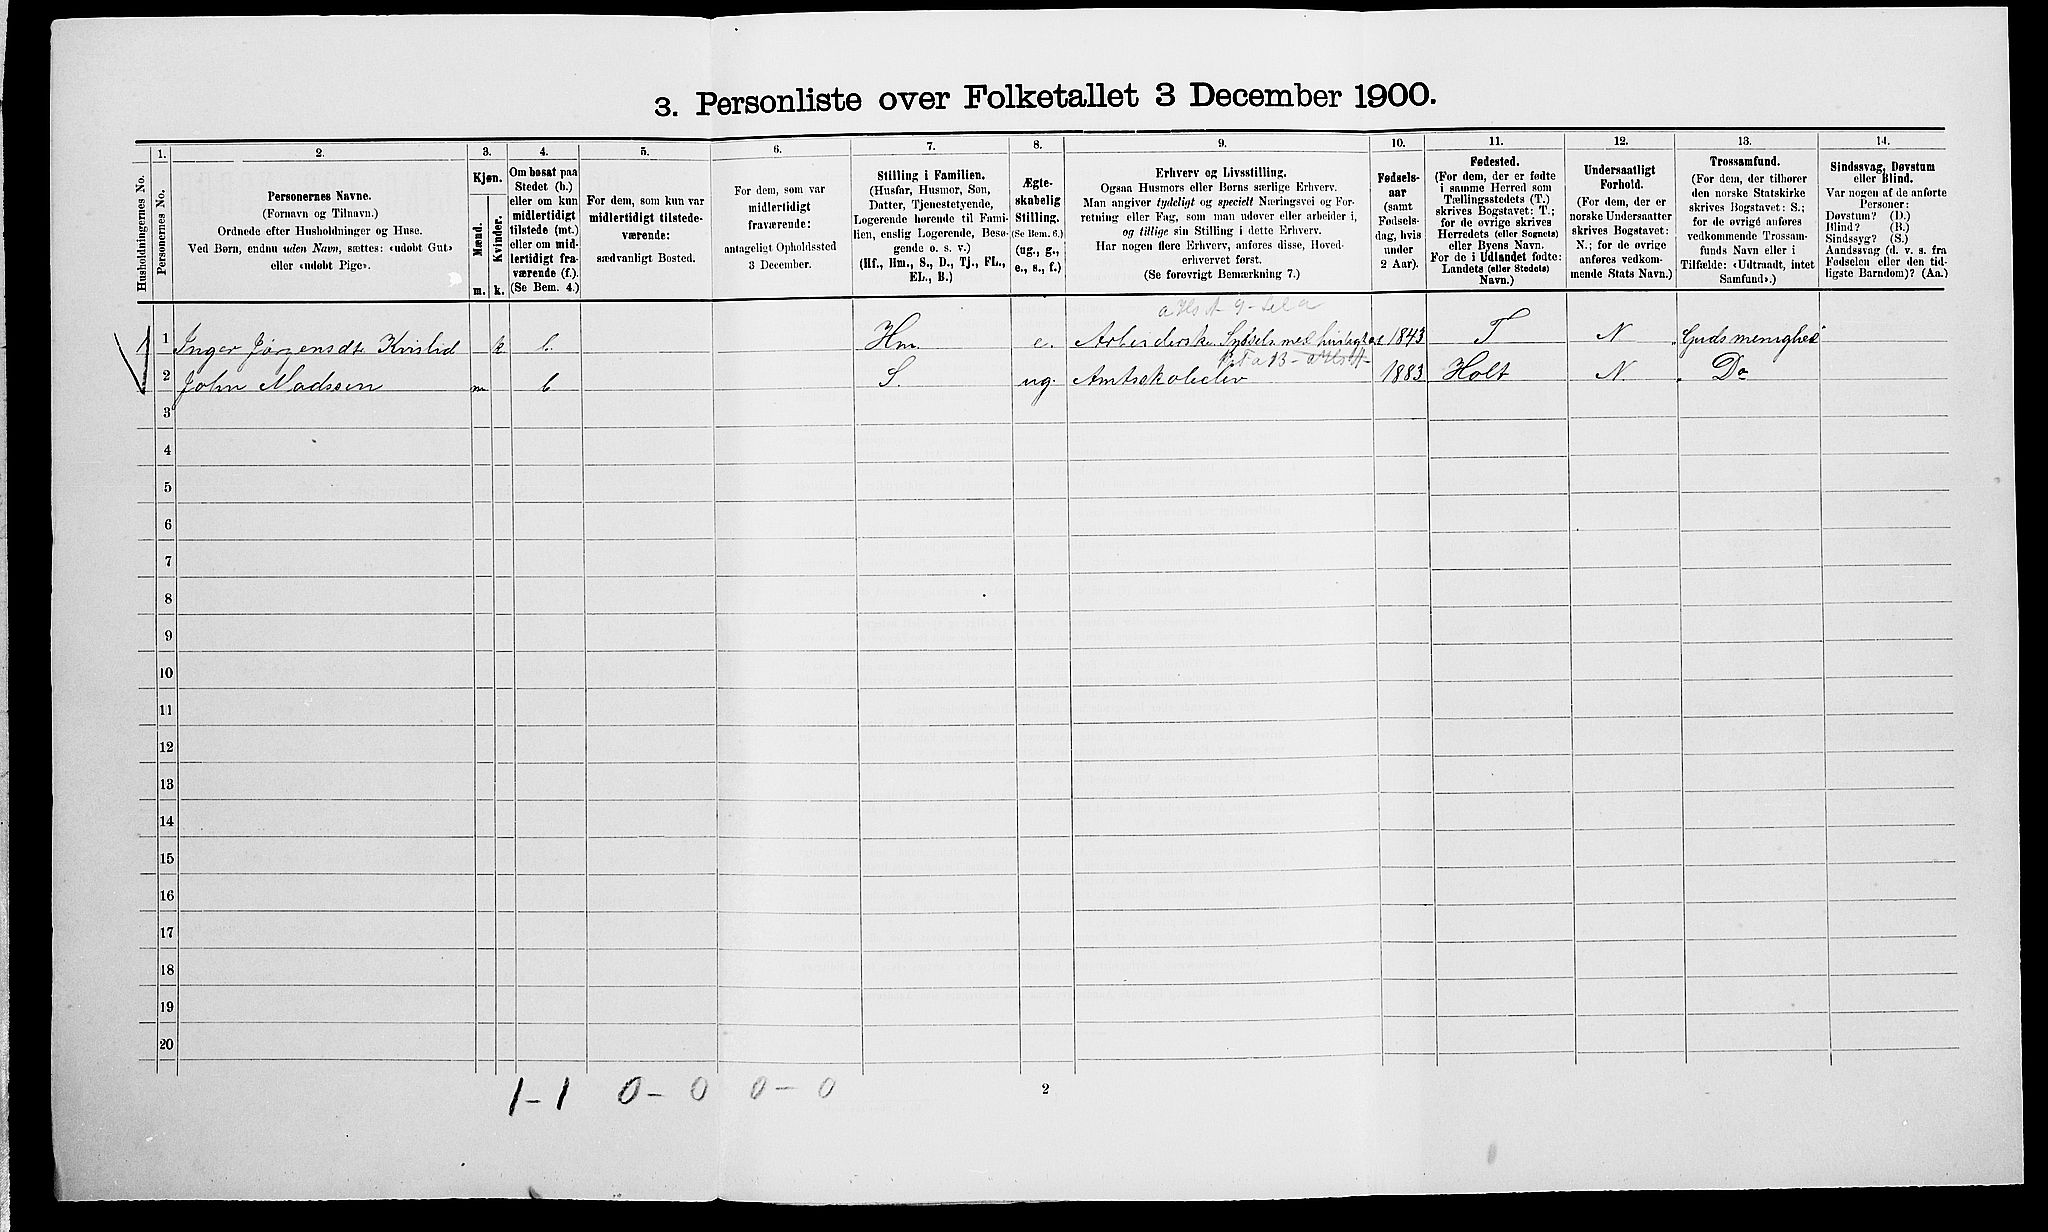 3. Personliste over Folketallet 3 December 1900.
Husholdningernes No.
1.
Personernes No.
2.
Personernes Navne.
(Fornavn og Tilnavn.)
Ordnede efter Husholdninger og Huse.
Ved Børn, endnu uden Navn, sættes: «udøbt Gut»
eller «udøbt Pige».
3.
Kjøn.
Mænd.
Kvinder.
m.
k.
4.
Om bosat paa
Stedet (b.)
eller om kun
midlertidigt
tilstede (mt.)
eller om mid-
lertidigt fra-
værende (f.).
(Se Bem. 4.)
5.
For dem, som kun var
midlertidigt tilstede-
værende:
sædvanligt Bosted.
6.
For dem, som var
midlertidigt
fraværende:
antageligt Opholdssted
3 December.
7.
Stilling i Familien.
(Husfar, Husmor, Søn,
Datter, Tjenestetyende,
Logerende hørende til Fami-
lien, enslig Logerende, Besø-
gende o. s. v.)
(Hf., Hm., S., D., Tj., FL.,
EL., B.)
8.
Ægte-
skabelig
Stilling.
(Se Bem. 6.)
(ug., g.,
e., s., f.)
9.
Erhverv og Livsstilling.
Ogsaa Husmors eller Børns særlige Erhverv.
Man angiver tydeligt og specielt Næringsvei og For-
retning eller Fag, som man udøver eller arbeider i,
og tillige sin Stilling i dette Erhverv.
Har nogen flere Erhverv, anføres disse, Hoved-
erhvervet først.
(Se forøvrigt Bemærkning 7.)
10.
Fødsels-
aar
(samt
Fødsels-
dag, hvis
under
2 Aar).
11.
Fødested.
(For dem, der er fødte
i samme Herred som
Tællingsstedets (T.)
skrives Bogstavet: T.;
for de øvrige skrives
Herredets (eller Sognets)
eller Byens Navn.
For de i Udlandet fødte:
Landets (eller Stedets)
Navn.)
12.
Undersaatligt
Forhold.
(For dem, der er
norske Undersaatter
skrives Bogstavet:
N.; for de øvrige
anføres vedkom-
mende Stats Navn.)
13.
Trossamfund.
(For dem, der tilhører
den norske Statskirke
skrives Bogstavet: S.;
for de øvrige anføres
vedkommende Trossam-
funds Navn eller i
Tilfælde: «Udtraadt, intet
Samfund».)
14.
Sindssvag, Døvstum
eller Blind.
Var nogen af de anførte
Personer:
Døvstum? (D.)
Blind? (B.)
Sindssyg? (S.)
Aandssvag (d. v. s. fra
Fødselen eller den tid-
ligste Barndom)? (Aa.)
1 1 Inger Jørgensdt. Kvislid k b. Hm. e. Arbeiderske 1843 T N Guds menighed
2 John Madssen m b S. ug. Amtsskoleelev 1883 Holt N. Do
3
4
5
6
7
8
9
10
11
12
13
14
15
16
17
18
19
20
1-1 0-0 0-0
2